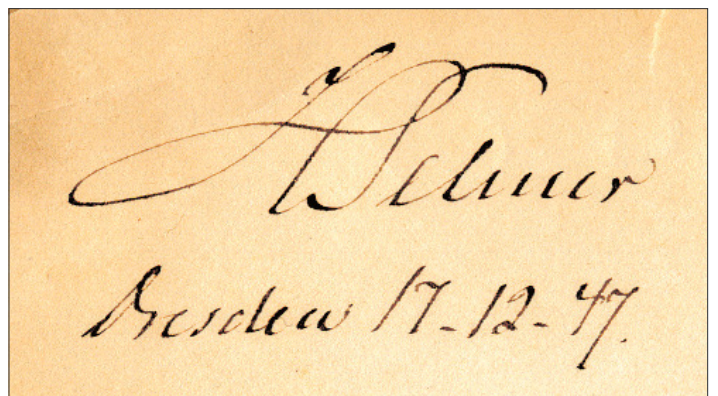 H Selmer
Dresden 17-12-47.